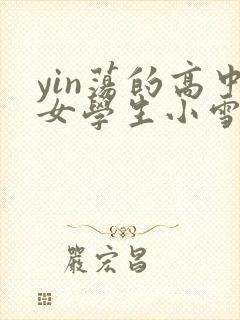 yin蕩的高中
女學生小雪
嚴宏昌